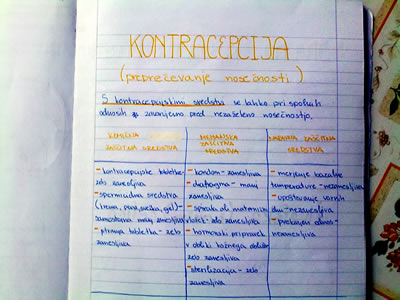 KONTRACEPCIJA
(preprečevanje nosečnosti)
S kontracepcijskimi sredstvi se lahko pri spolnih
odnosih zavarujemo pred nezaželeno nosečnostjo.
KEMIČNA
ZAŠČITNA SREDSTVA
MEHANSKA
ZAŠČITNA
SREDSTVA
NARAVNA ZAŠČITNA
SREDSTVA
- kontracepcijske tabletke-
zelo zanesljiva
- spermicidna sredstva
(krema, pena, gel)-
samostojna manj zanesljiva
- jutranja tabletka-zelo
zanesljiva
- kondom-zanesljiva
- diafragma - manj
zanesljiva
- spirala ali maternični
vložek-zelo zanesljiva
- hormonski pripravek
v obliki kožnega obliža
zelo zanesljiva
- sterilizacija - zelo
zanesljiva
- merjenje bazalne
temperature-nezanesljiva
- upoštevanje varnih
dni-nezanesljiva
- prekinjen odnos-
nezanesljiva